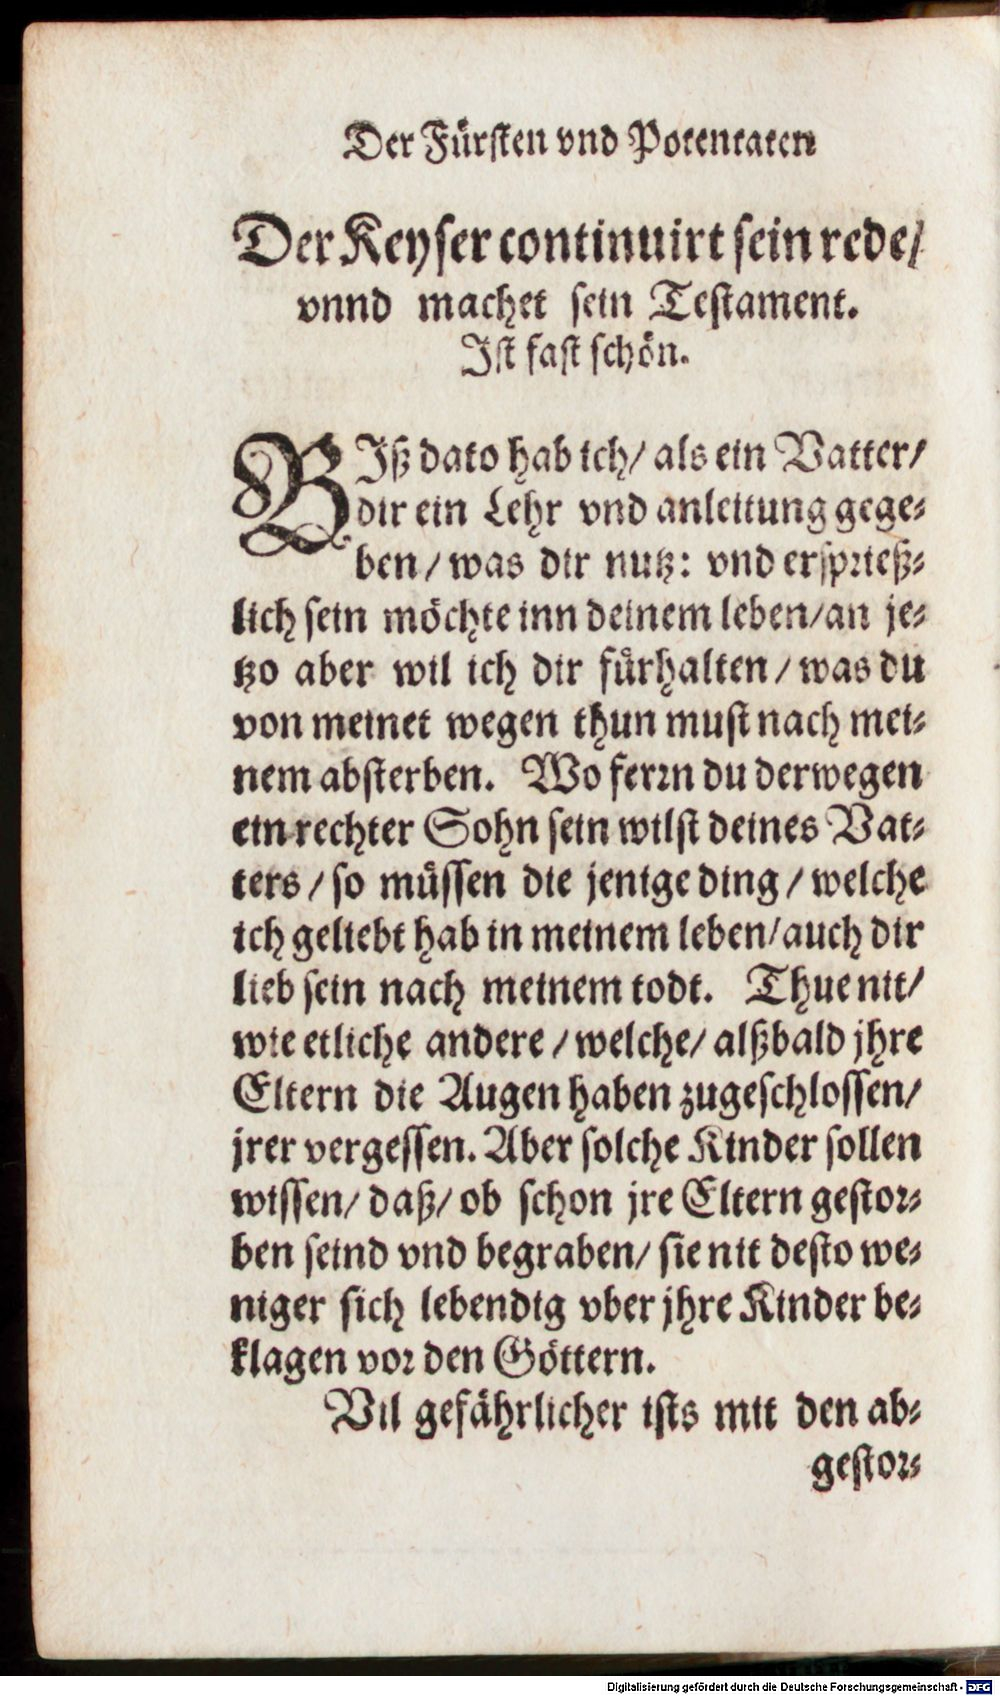 Der Fürsten vnd Potentaten
Der Keyser continuirt sein rede/
vnnd machet sein Testament.
Ist fast schön.
BIß dato hab ich/ als ein Vatter/
dir ein Lehr vnd anleitung gege-
ben/ was dir nutz: vnd ersprieß-
lich sein möchte inn deinem leben/ an je-
tzo aber wil ich dir fürhalten/ was du
von meinet wegen thun must nach mei-
nem absterben. Wo ferrn du derwegen
ein rechter Sohn sein wilst deines Vat-
ters/ so müssen die jenige ding/ welche
ich geliebt hab in meinem leben/ auch dir
lieb sein nach meinem todt. Thue nit/
wie etliche andere/ welche/ alßbald jhre
Eltern die Augen haben zugeschlossen/
jrer vergessen. Aber solche Kinder sollen
wissen/ daß/ ob schon jre Eltern gestor-
ben seind vnd begraben/ sie nit desto we-
niger sich lebendig vber jhre Kinder be-
klagen vor den Göttern.
Vil gefährlicher ists mit den ab-
gestor-
Digitalisierung gefördert durch die Deutsche Forschungsgemeinschaft - DFG